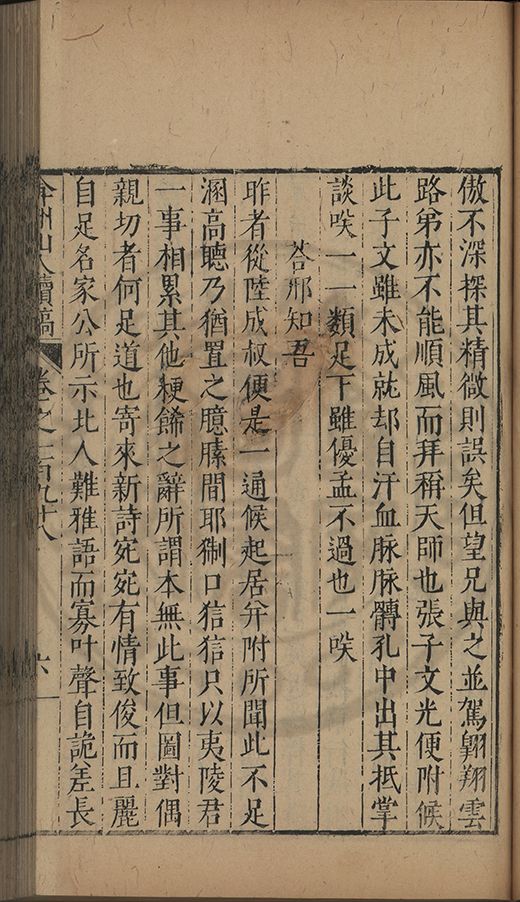 傲不深探其精微則誤矣但望兄與之並駕翺翔雲
路弟亦不能順風而拜稱天師也張子文光便附候
此子文雖未成就却自汗血脉脉髆孔中出其抵掌
談咲一一類足下雖優孟不過也一咲
荅邢知吾
昨者從陸成叔便是一通候起居并附所聞此不足
溷高聽乃猶置之臆膆間耶猘口狺狺只以夷陵君
一事相累其他粳餙之辭所謂本無此事但圖對偶
親切者何足道也寄來新詩宛宛有情致俊而且麗
自足名家公所示北人難雅語而寡叶聲自詭差長
弇州山人續稿 卷之一百九十八 六